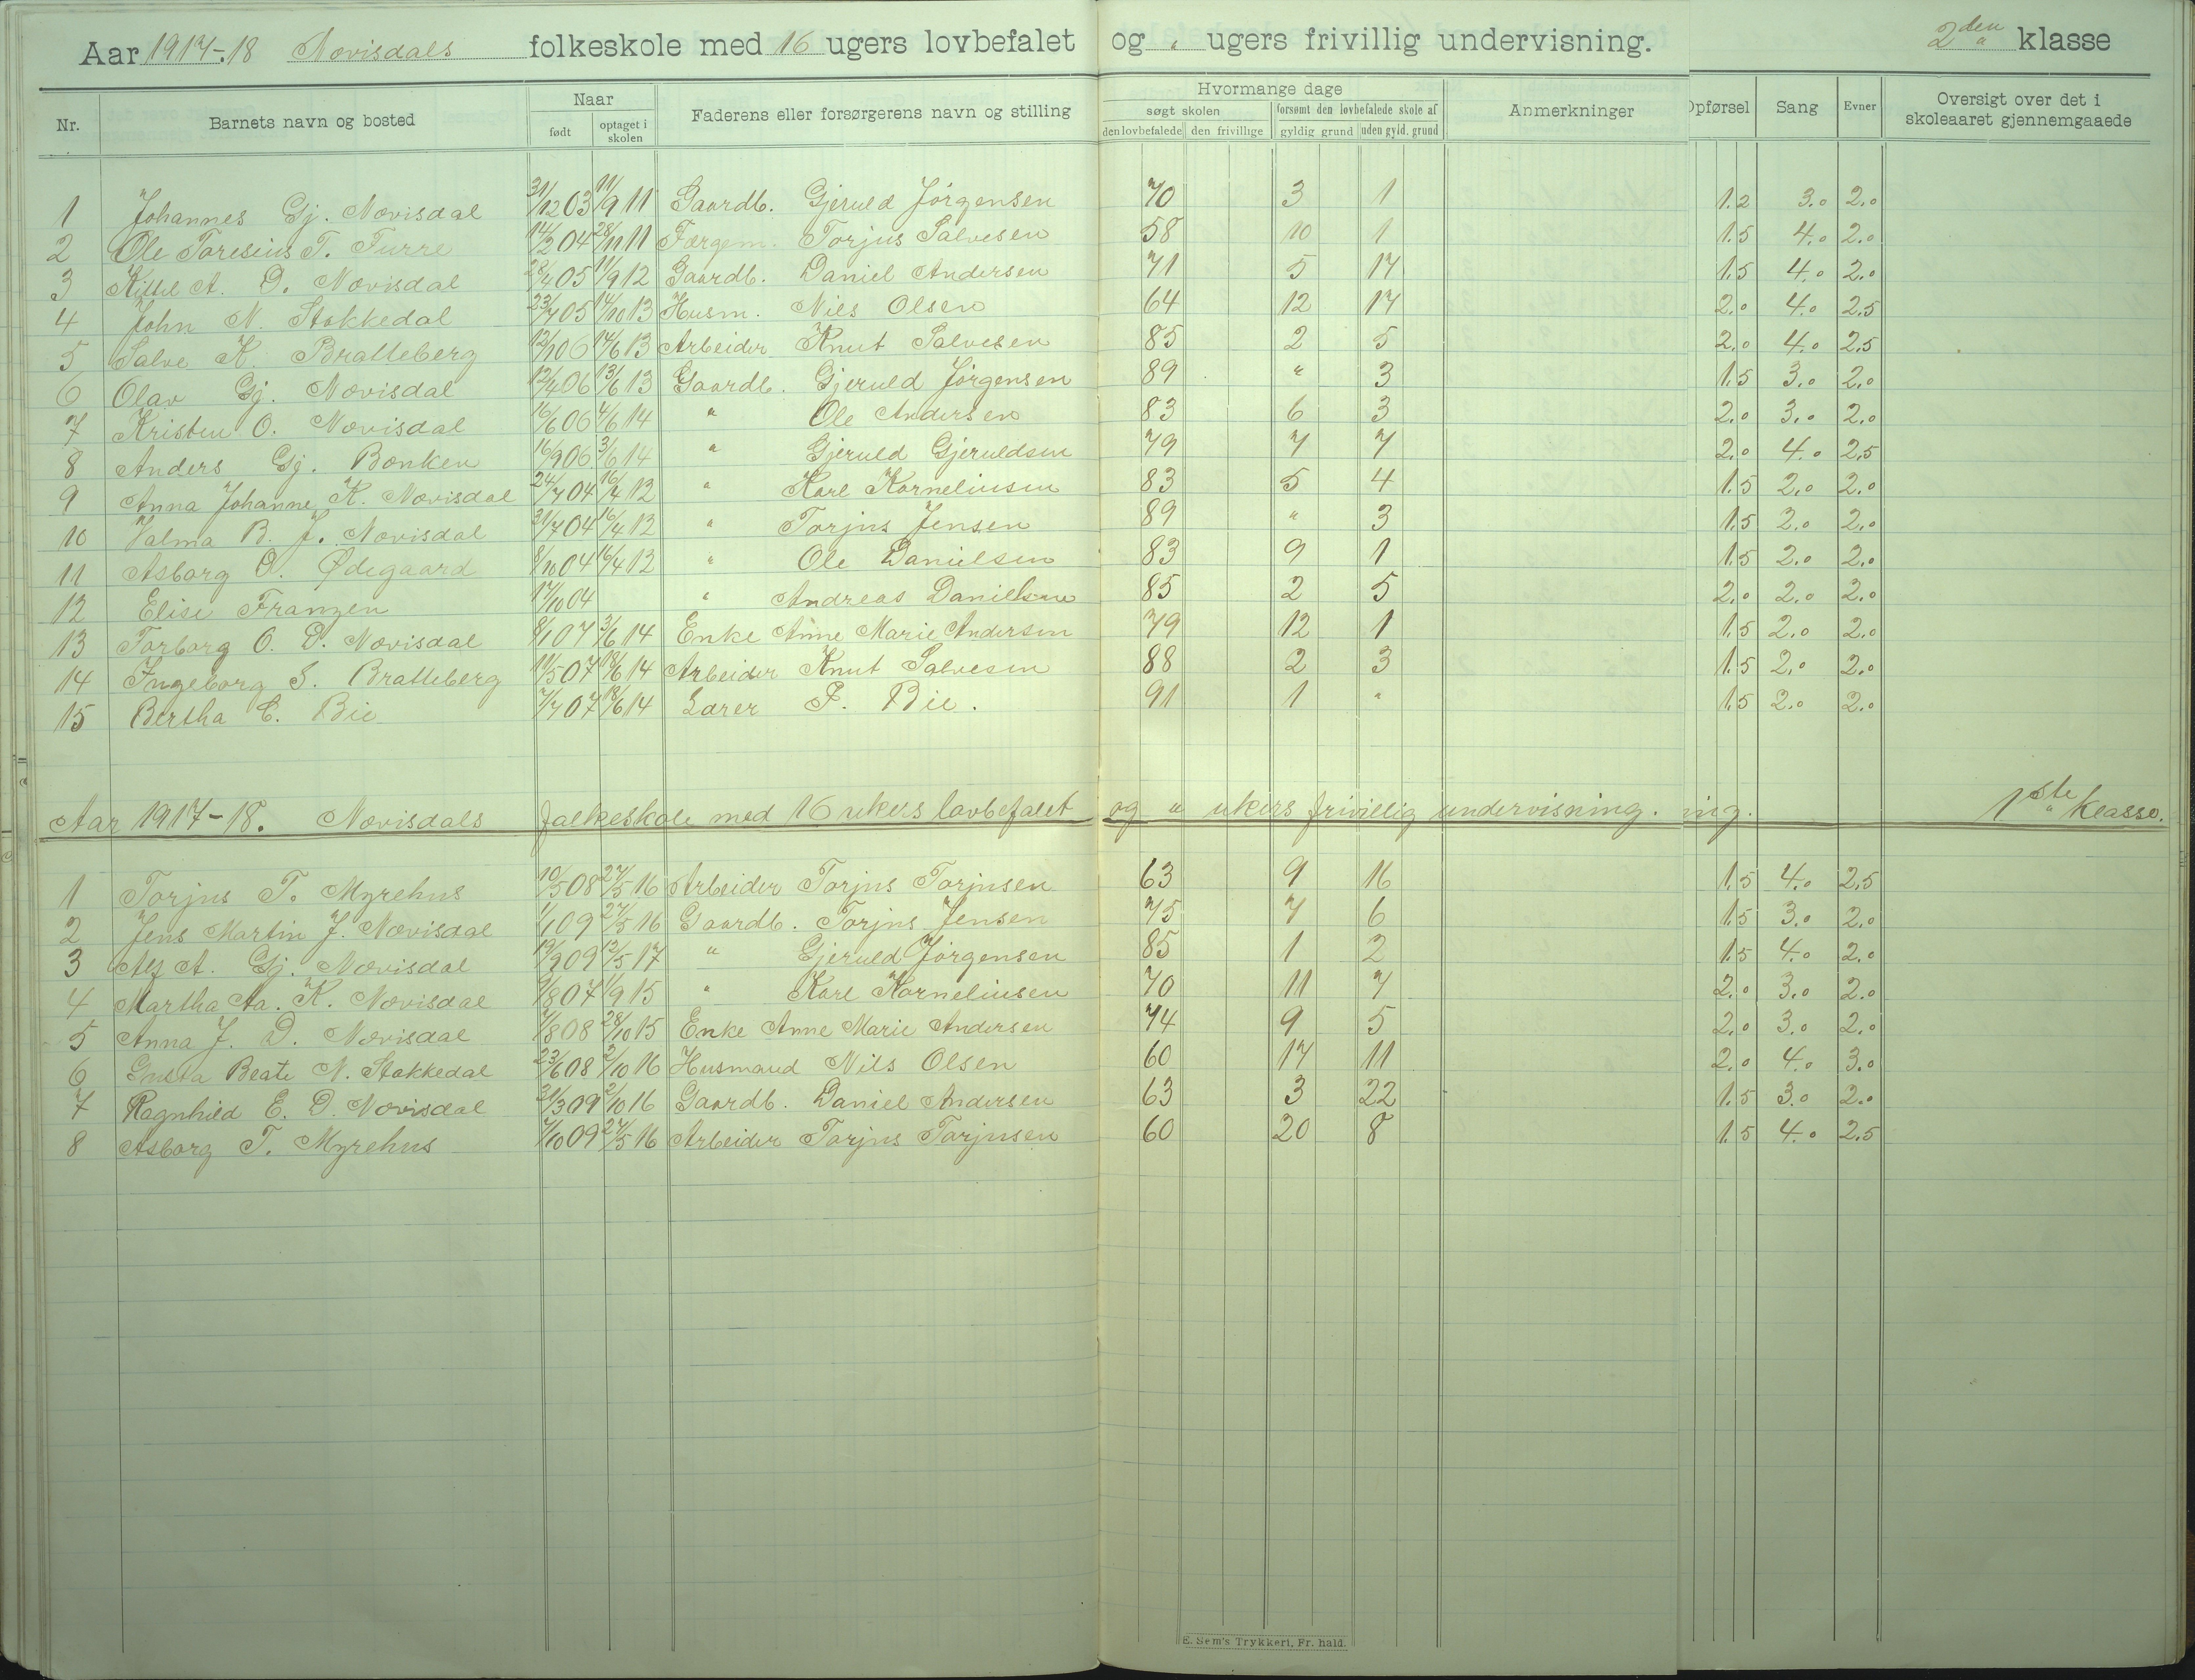 Aar 1917-18 Nævisdals folkeskole med 16 ugers lovbefalet og " ugers frivillig undervisning. 2den klasse
Nr. Barnets navn og bosted Naar født optaget i skolen Faderens eller forsørgerens navn og stilling Hvormange dage søgt skolen den lovbefalede den frivillige forsømt den lovbefalede skole af gyldig grund uden gyld. grund Anmerkninger Opførsel Sang Evner Oversigt over det i skoleaaret gjennemgaaede
1 Johannes Gj. Nævisdal 31/12 03 11/9 11 Gaardb. Gjeruld Jørgensen 70 3 1 1.2 3.0 2.0
2 Ole Toresius T. Furre 14/2 04 28/11 11 Færgem. Torjus Salvesen 58 10 1 1.5 4.0 2.0
3 Kittil A. D. Nævisdal 28/4 05 11/9 12 Gaardb. Daniel Andersen 71 5 17 1.5 4.0 2.0
4 John N. Stokkedal 23/7 05 14/10 13 Husm. Nils Olsen 64 12 17 2.0 4.0 2.5
5 Salve K. Bratteberg 12/1 06 14/6 13 Arbeider Knut Salvesen 85 2 5 2.0 4.0 2.5
6 Olav Gj. Nævisdal 12/4 06 13/6 13 Gaardb. Gjeruld Jørgensen 89 " 3 1.5 3.0 2.0
7 Kristen O. Nævisdal 16/6 06 4/6 14 " Ole Andersen 83 6 3 2.0 3.0 2.0
8 Anders Gj. Bænken 16/9 06 3/6 14 " Gjeruld Gjeruldsen 79 7 7 2.0 4.0 2.5
9 Anna Johanne K. Nævisdal 24/7 04 16/4 12 " Karl Korneliusen 83 5 4 1.5 2.0 2.0
10 Valma B. J. Nævisdal 31/7 04 16/4 12 " Torjus Jensen 89 " 3 1.5 2.0 2.0
11 Asborg O. Ødegaard 8/10 04 16/4 12 " Ole Danielsen 83 9 1 1.5 2.0 2.0
12 Elise Franzen 17/10 04 " Andreas Danielsen 85 2 5 2.0 2.0 2.0
13 Torborg O. D. Nævisdal 8/1 07 3/6 14 Enke Anne Marie Andersen 79 12 1 1.5 2.0 2.0
14 Ingeborg S. Bratteberg 11/5 07 18/6 14 Arbeider Knut Salvesen 88 2 3 1.5 2.0 2.0
15 Bertha C. Bie 7/7 07 18/6 14 Lærer F. Bie. 91 1 " 1.5 2.0 2.0
Aar 1917-18. Nævisdals folkeskole med 16 ukers lovbefalet og " ukers frivillig undervisning. ing. 1ste klasse.
1 Torjus T. Myrehus 10/5 08 27/5 16 Arbeider Torjus Torjusen 63 9 16 1.5 4.0 2.5
2 Jens Martin J. Nævisdal 1/1 09 27/5 16 Gaardb. Torjus Jensen 75 7 6 1.5 3.0 2.0
3 Alf A. Gj. Nævisdal 19/9 09 12/5 17 " Gjeruld Jørgensen 85 1 2 1.5 4.0 2.0
4 Martha Aa. K. Nævisdal 9/8 07 1/9 15 " Karl Korneliusen 70 11 7 2.0 3.0 2.0
5 Anna J. D. Nævisdal 7/8 08 28/10 15 Enke Anne Marie Andersen 74 9 5 2.0 3.0 2.0
6 Gusta Beate N. Stokkedal 23/6 08 2/10 16 Husmand Nils Olsen 60 17 11 2.0 4.0 3.0
7 Ragnhild E. D. Nævisdal 21/3 09 2/10 16 Gaardb. Daniel Andersen 63 3 22 1.5 3.0 2.0
8 Asborg T. Myrehus 7/10 09 27/5 16 Arbeider Torjus Torjusen 60 20 8 1.5 4.0 2.5
E. Sem's Trykkeri, Fr. hald.